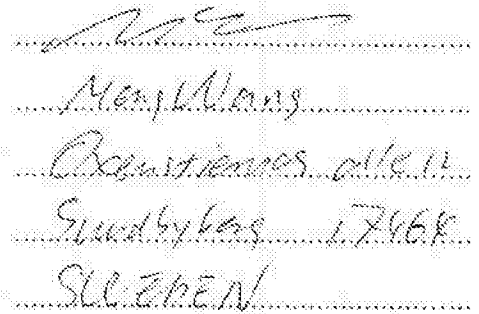 Meng Wang
Oxenstiernas allé 11
Sundbyberg 17468
SWEDEN